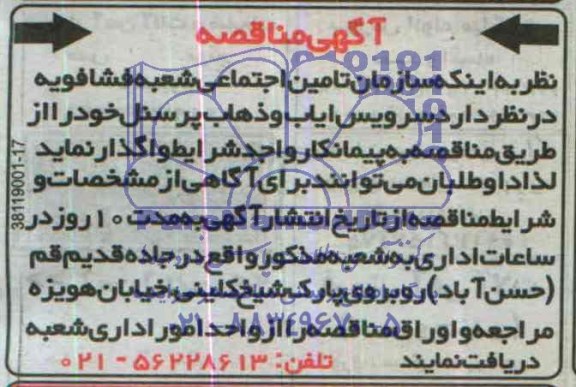 آگهی مناقصه
نظر به اینکه سازمان تامین اجتماعی شعبه فشافویه
در نظر دارد سرویس ایاب و ذهاب پرسنل خود را از
طریق مناقصه به پیمانکار واجد شرایط واگذار نماید
لذا داوطلبان می توانند برای آگاهی از مشخصات و
شرایط مناقصه از تاریخ انتشار آگهی به مدت ۱۰ روز در
ساعات اداری به شعبه مذکور واقع در جاده قدیم قم
(حسن آباد) روبروی پارک شیخ کلینی خیابان هویزه
مراجعه و اوراق مناقصه را از واحد امور اداری شعبه
دریافت نمایند تلفن: ۵۶۲۲۸۶۱۳ - ۰۲۱
38119001-17